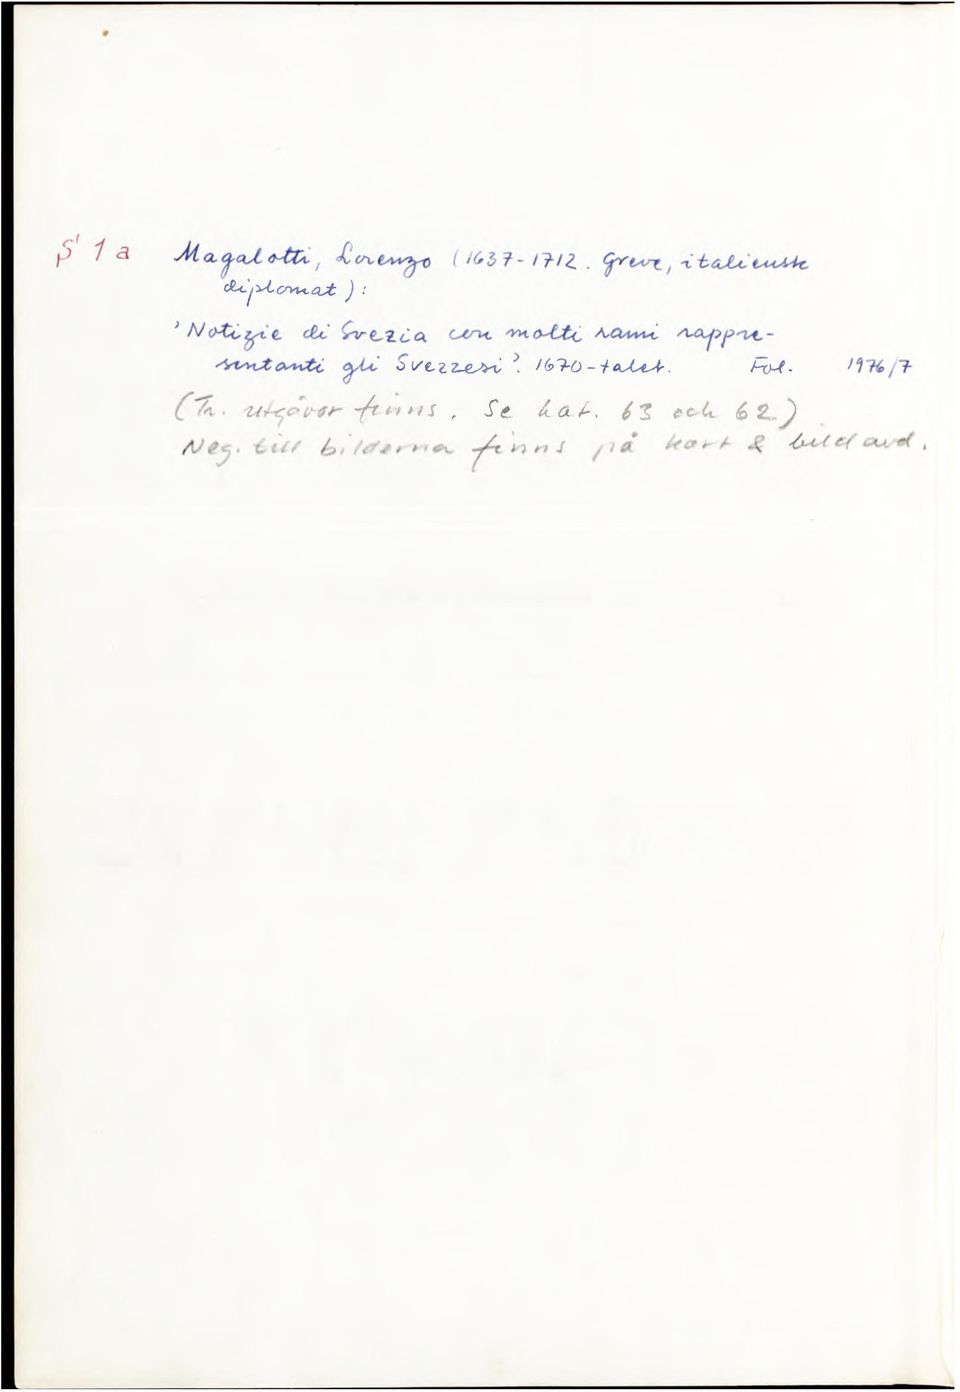 S 1 a Magalotti, Lorenzo (1637-1712. Greve, italiensk
diplomat):
'Notizie di Svezia con molti rami rappre-
sentanti gli Svezzesi'. 1670-talet. Fol. 1976/7
(Tr. utgåvor finns. Se kat. 63 och 62)
Neg. till bilderna finns på kart & bildavd.